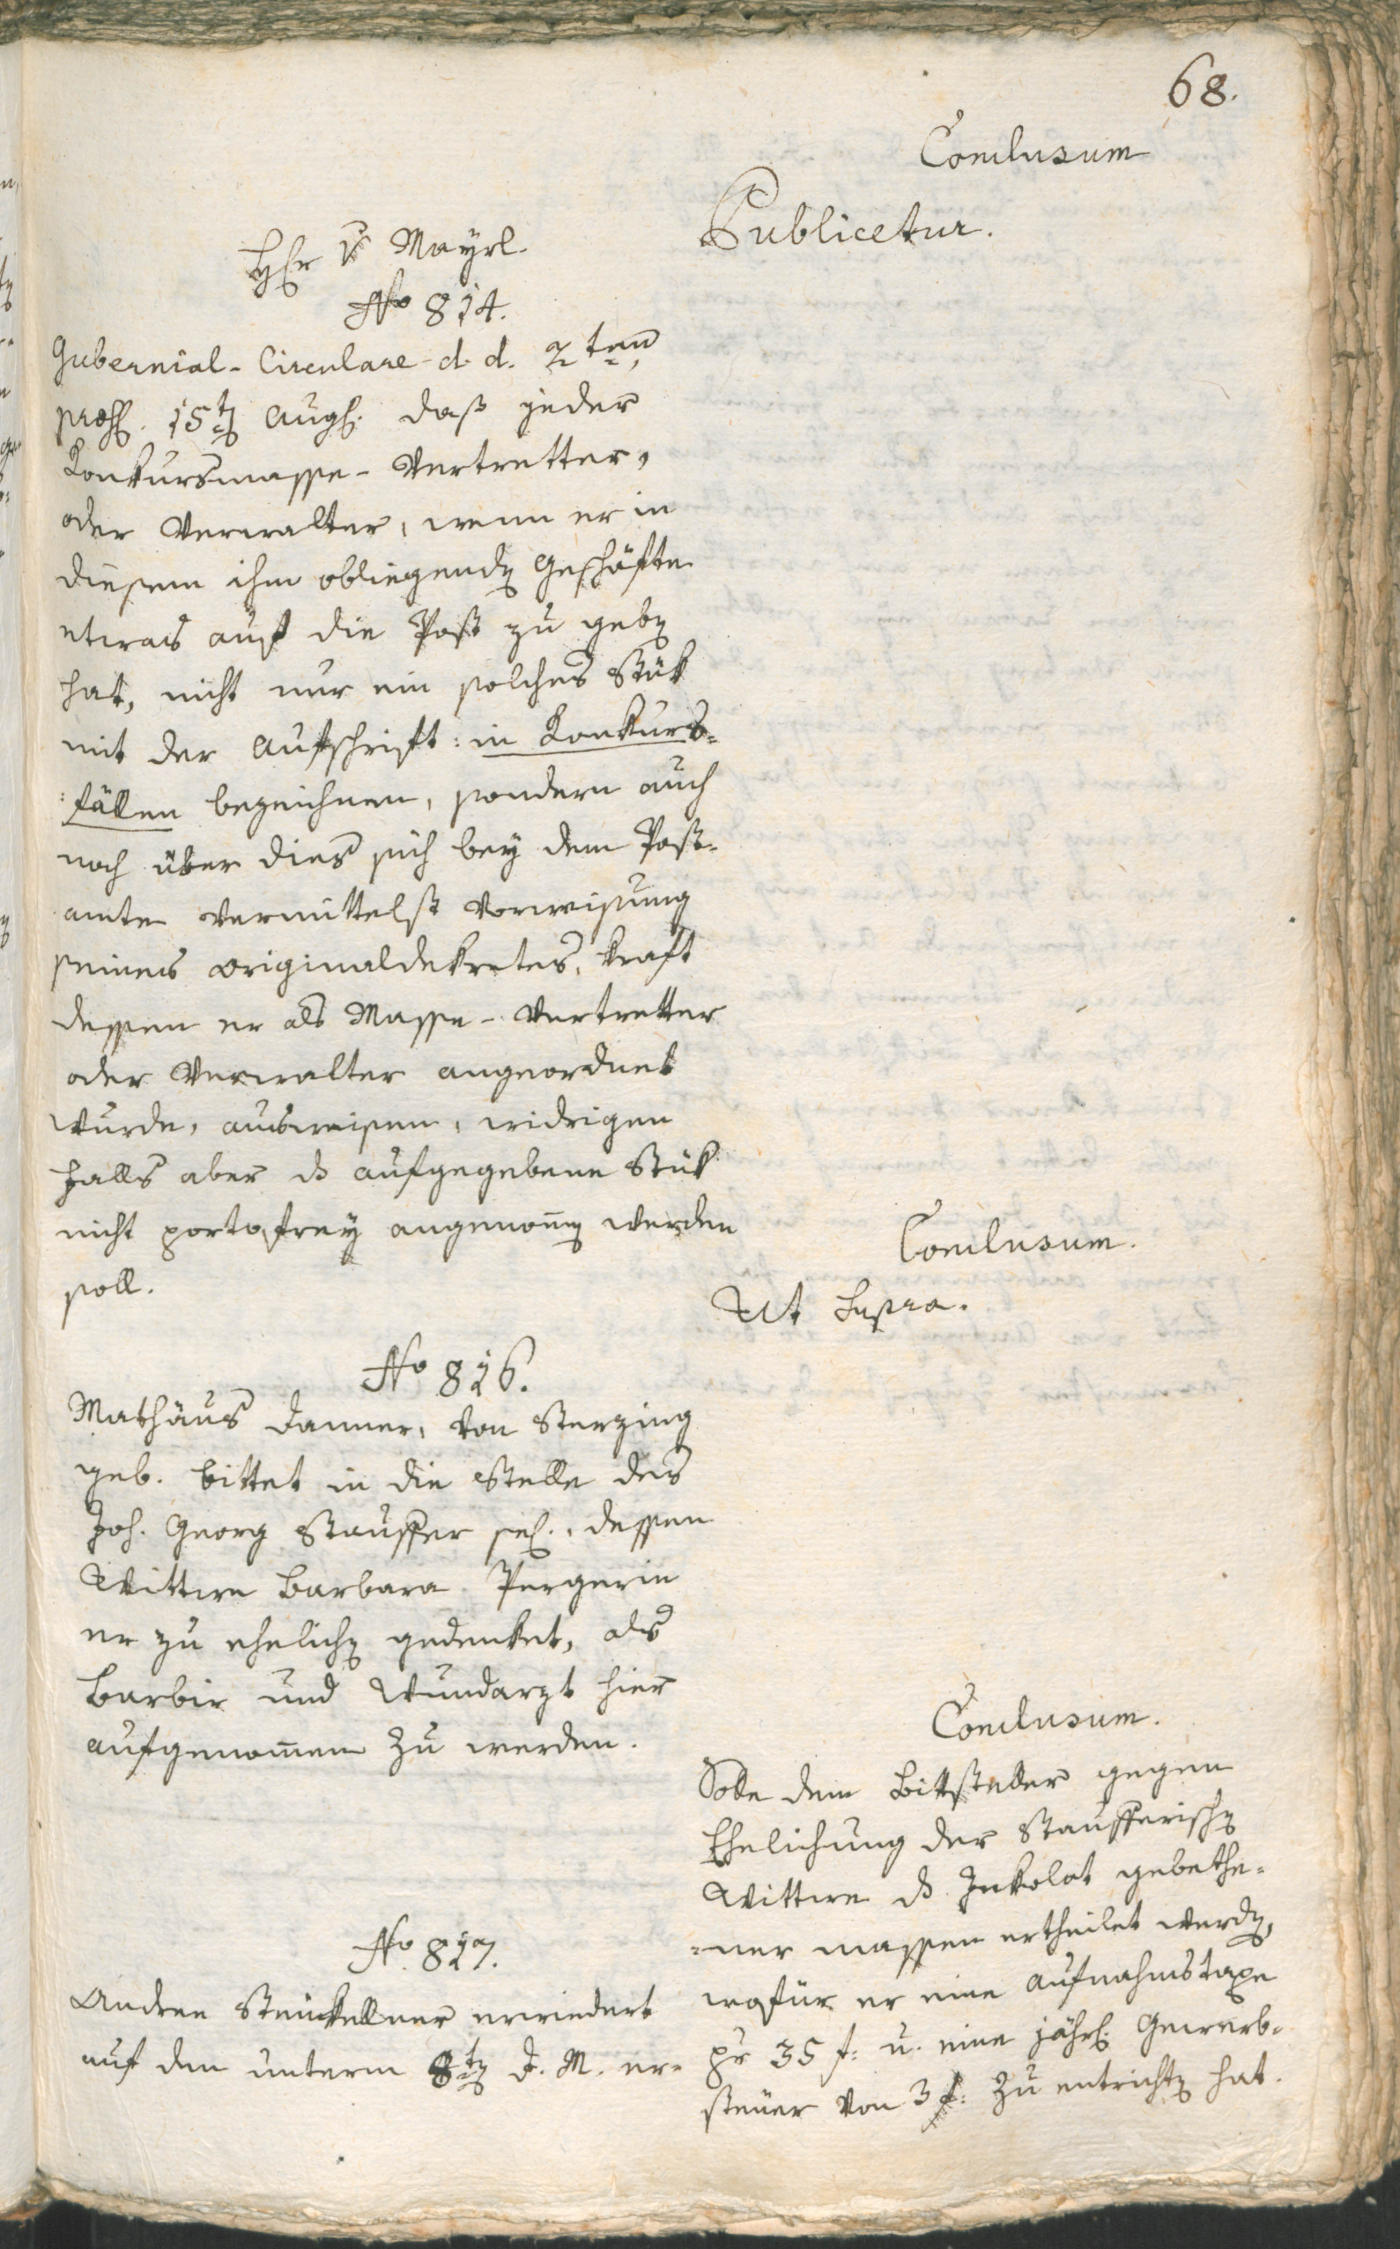 68.
Conclusum
Publicetur.
H̅r v Mayrl.
No 814.
Gubernial-Circulare d. d. 2ten,
præs. 15tn Aug. daß jeder
Konkursmasse-Vertretter,
oder Verwalter, wenn er in
diesem ihm obliegendn Geschäfte
etwas auf die Post zu gebn
hat, nicht nur ein solches Stük
mit der Aufschrift: in Konkurs-
:fällen bezeichnen, sondern auch
noch über dies sich bey dem Post-
amte vermittelst Vorweisung
seines Originaldekretes, kraft
dessen er als Masse-Vertretter
oder Verwalter angeordnet
wurde, ausweisen, widrigen
Falls aber ds aufgegebene Stük
nicht portofrey angenom̅n werden
soll.
Conclusum.
Ut Supra.
No 816.
Mathäus Danner, von Sterzing
geb. bittet in die Stelle des
Joh. Georg Stauffer sel., dessen
Wittwe Barbara Pergerin
er zu ehelichn gedenket, als
Barbir und Wundarzt hier
aufgenom̅en zu werden.
Conclusum.
Solle dem Bittsteller gegen
Ehelichung der Staufferischn
Wittwe ds Inkolat gebethe-
-ner massen ertheilet werdn,
wofür er eine Aufnahmstaxe
pr 35 f: u. eine jährl. Gewerb-
steuer von 3 f: zu entrichtn hat.
No. 817.
Andree Steinkellner erwiedert
auf den unterm 8tn d. M. er-